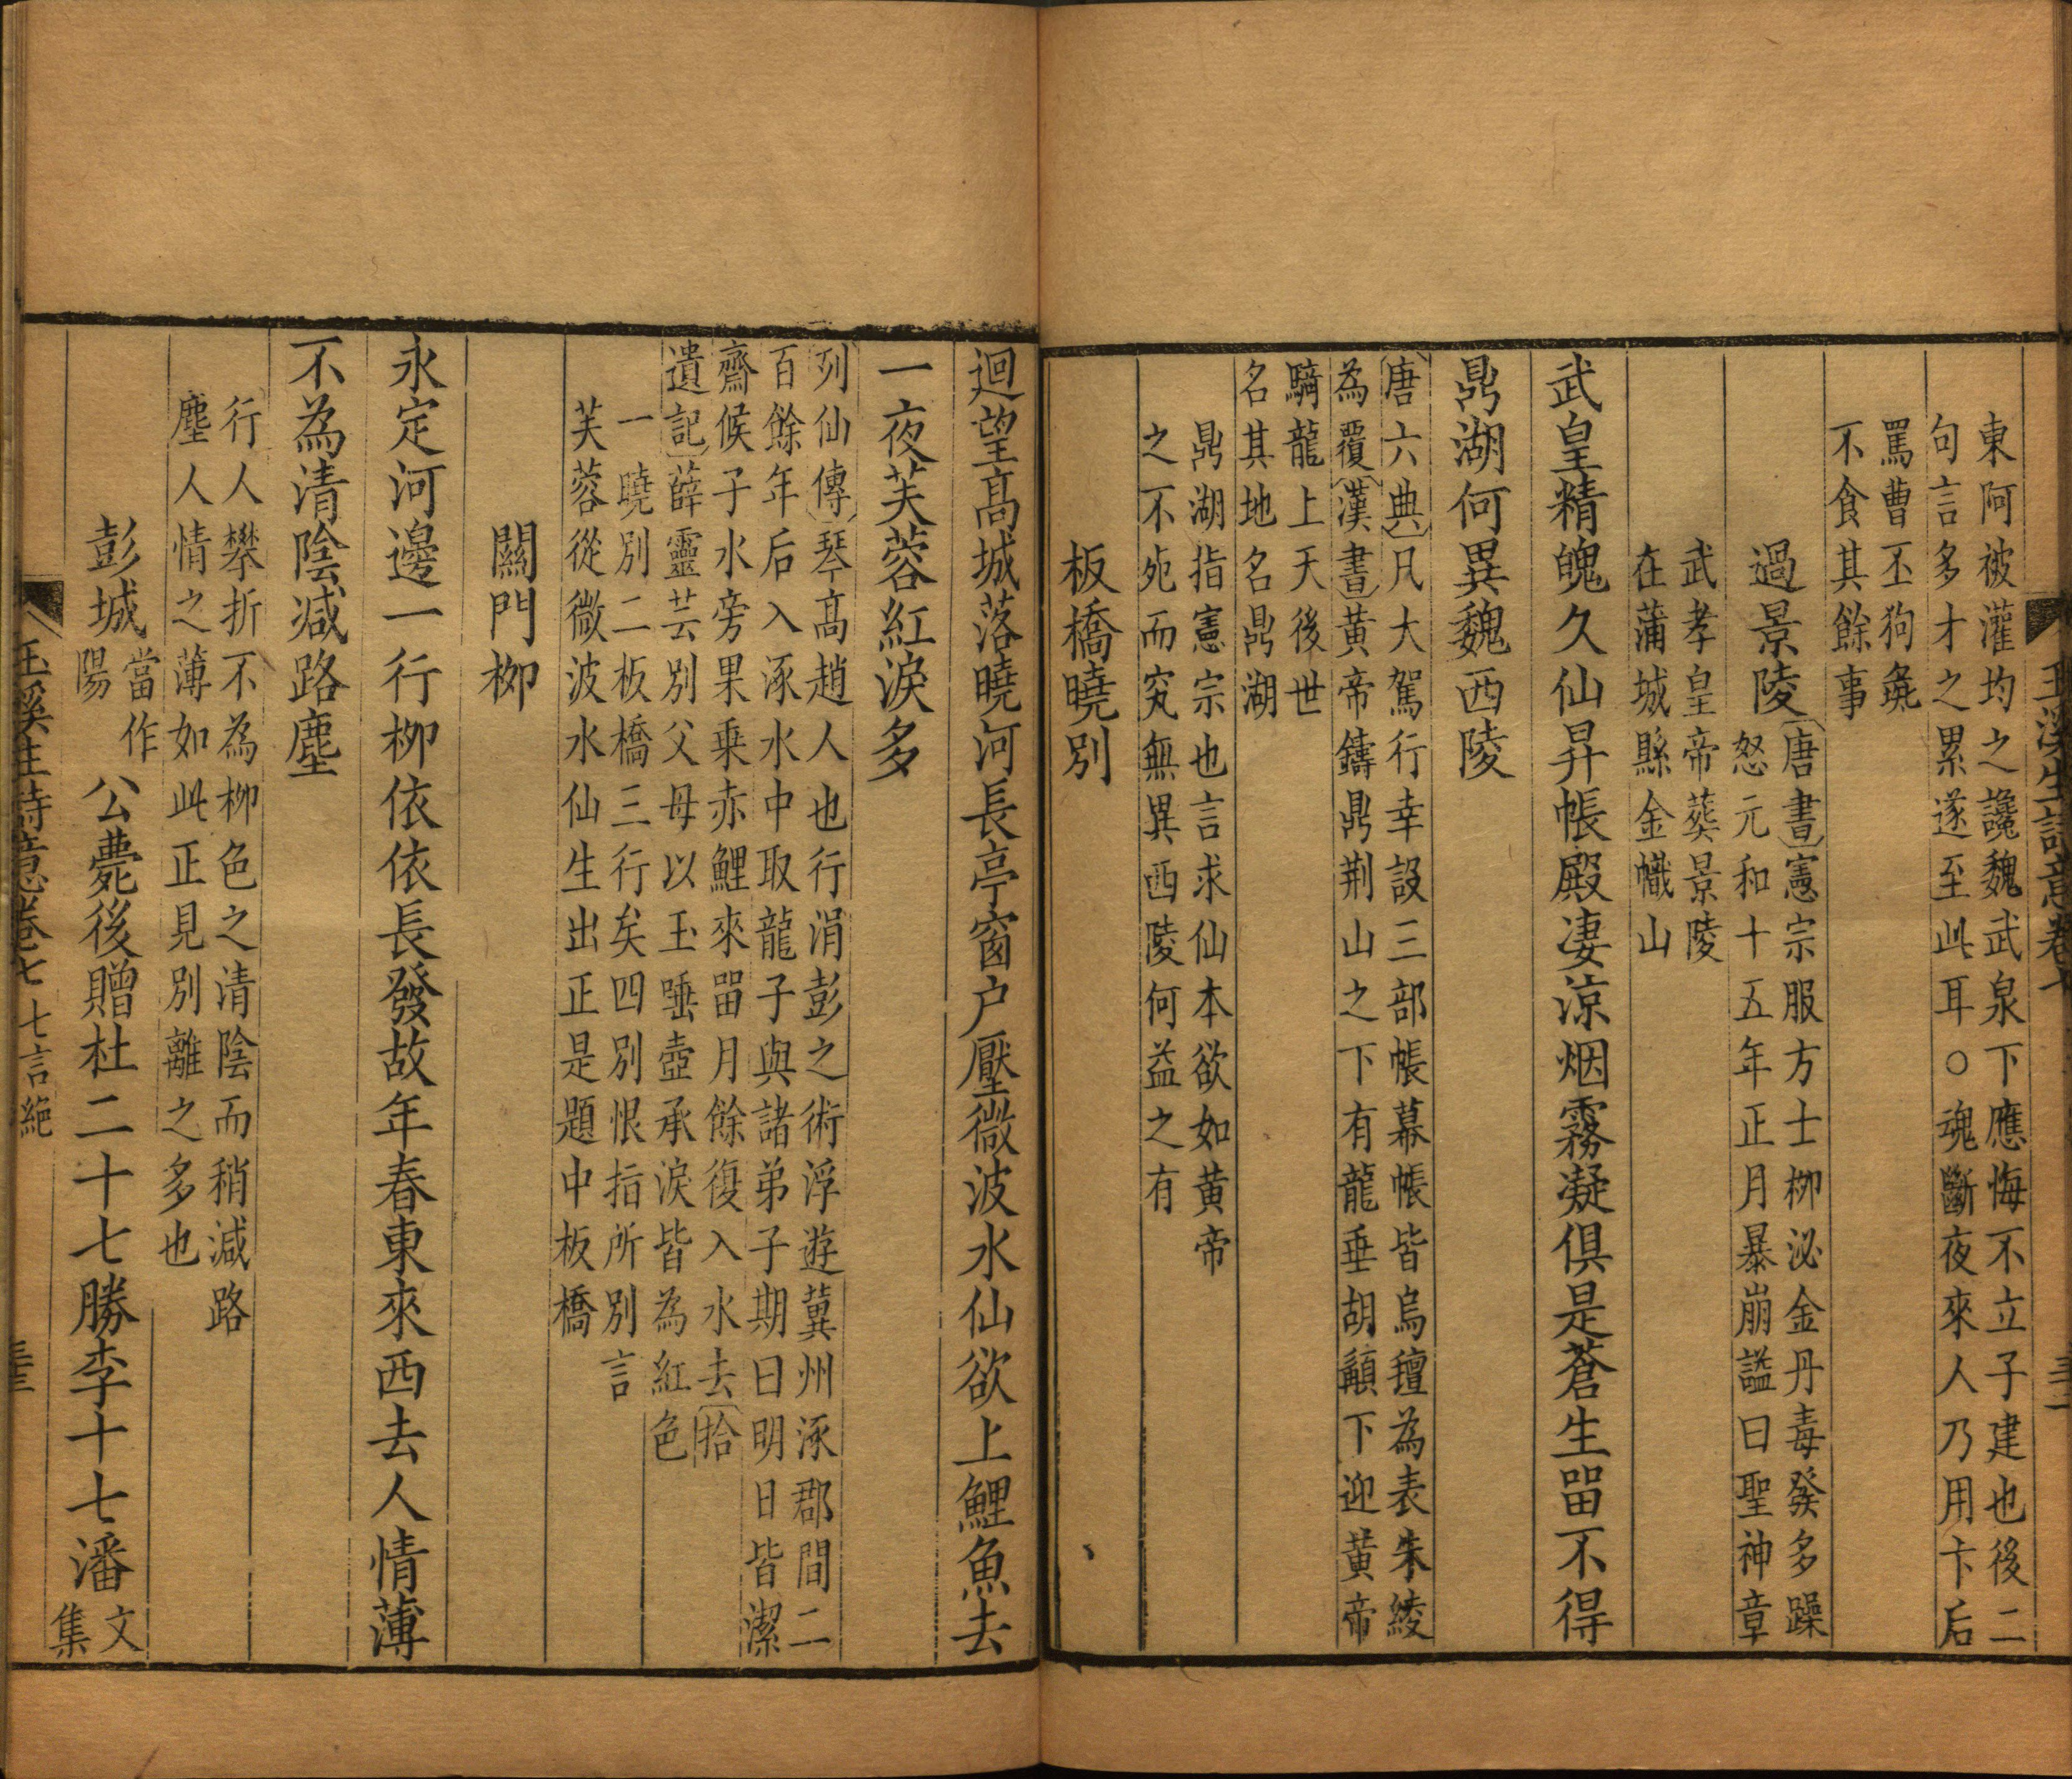 東阿被灌均之讒魏武泉下應悔不立子建也後二
句言多才之累遂至此耳○魂斷夜來人乃用卞后
罵曹丕狗彘
不食其餘事
過景陵
唐書憲宗服方士柳泌金丹毒發多躁
怒元和十五年正月暴崩謚曰聖神章
武孝皇帝葬景陵
在蒲城縣金幟山
武皇精魄久仙昇帳殿淒涼烟霧凝俱是蒼生畱不得
鼎湖何異魏西陵
唐六典凡大駕行幸設三部帳幕帳皆烏氊為表朱綾
為覆漢書黃帝鑄鼎荆山之下有龍垂胡顬下迎黃帝
騎龍上天後世
名其地名鼎湖
鼎湖指憲宗也言求仙本欲如黃帝
之不死而究無異西陵何益之有
板橋曉別
迴望高城落曉河長亭窗户壓微波水仙欲上鯉魚去
一夜芙蓉紅淚多
列仙傳琴高趙人也行涓彭之術浮遊冀州涿郡間二
百餘年后入涿水中取龍子與諸弟子期曰明日皆潔
齋候子水旁果乘赤鯉來畱月餘復入水去拾
遺記薛靈芸別父母以玉唾壺承淚皆為紅色
一曉別二板橋三行矣四別恨指所別言
芙蓉從微波水仙生出正是題中板橋
關門柳
永定河邊一行柳依依長發故年春東來西去人情薄
不為清陰减路塵
行人攀折不為柳色之清陰而稍減路
塵人情之薄如此正見別離之多也
彭城
當作
陽
公薨後贈杜二十七勝李十七潘
文
集
玉溪生詩意卷七 七言絶